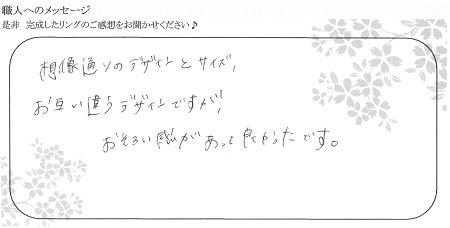 職人へのメッセージ
是非 完成したリングのご感想をお聞かせください♪
想像通りのデザインとサイズ、
お互い違うデザインですが、
おそろい感があって良かったです。